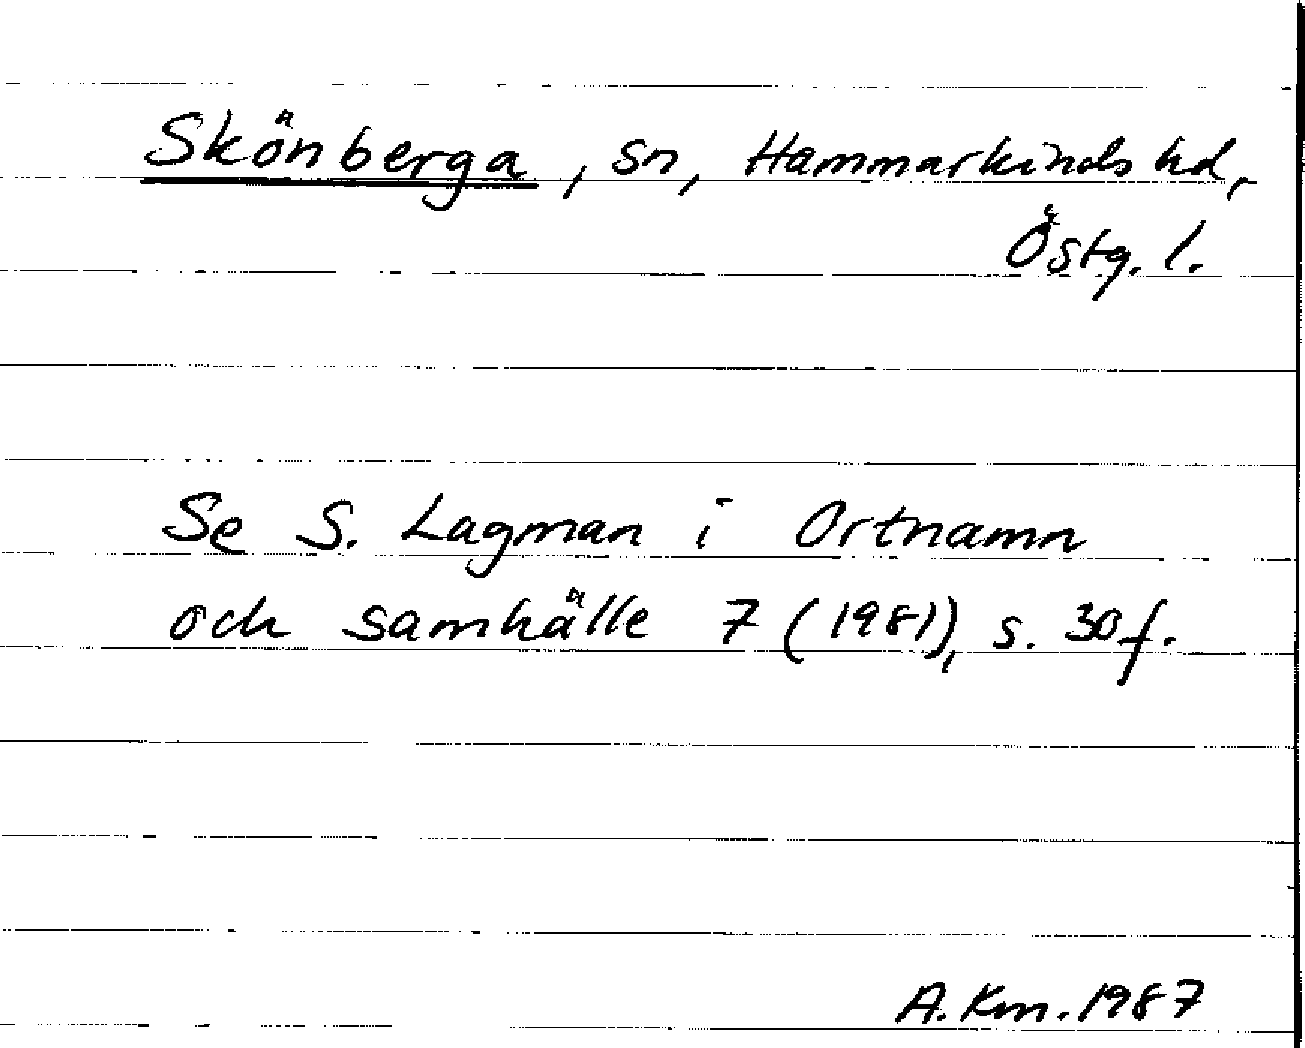 Skönberga, sn, Hammarkinds hd,
Östg. l.
Se S. Lagman i Ortnamn
och samhälle 7 (1981), s. 30 f.
A. Km. 1987